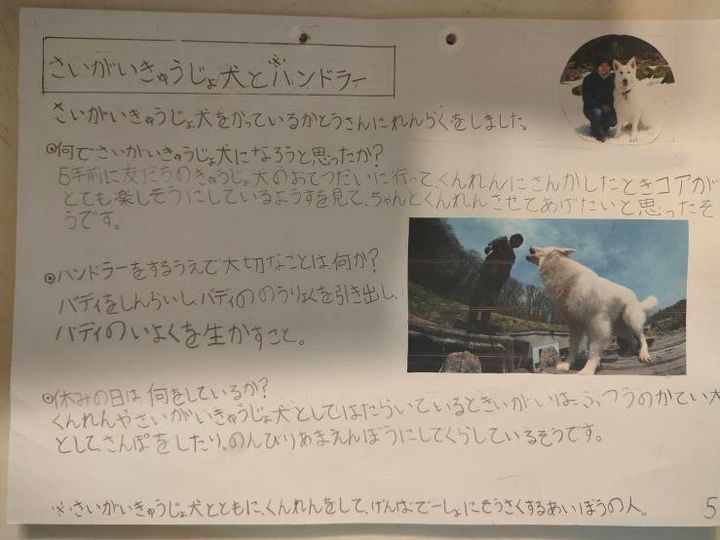 さいがいきゅうじょ犬と※ハンドラー
さいがいきゅうじょ犬をかっているかとうさんにれんらくをしました。
◉何でさいがいきゅうじょ犬になろうと思ったか?
5年前に友だちのきゅうじょ犬のおてつだいに行って、くんれんにさんかしたときコアが
とても楽しそうにしているようすを見て、ちゃんとくんれんさせてあげたいと思ったそ
うです。
◉ハンドラーをするうえで大切なことは、何か?
バディをしんらいし、バディののうりょくを引き出し、
バディのいよくを生かすこと。
◉休みの日は、何をしているか?
くんれんやさいがいきゅうじょ犬としてはたらいているときいがいは、ふつうのかてい犬
として、さんぽをしたり、のんびりあまえんぼうにしてくらしているそうです。
※さいがいきゅうじょ犬とともに、くんれんをして、げんばでいっしょにそうさくするあいぼうの人。
5